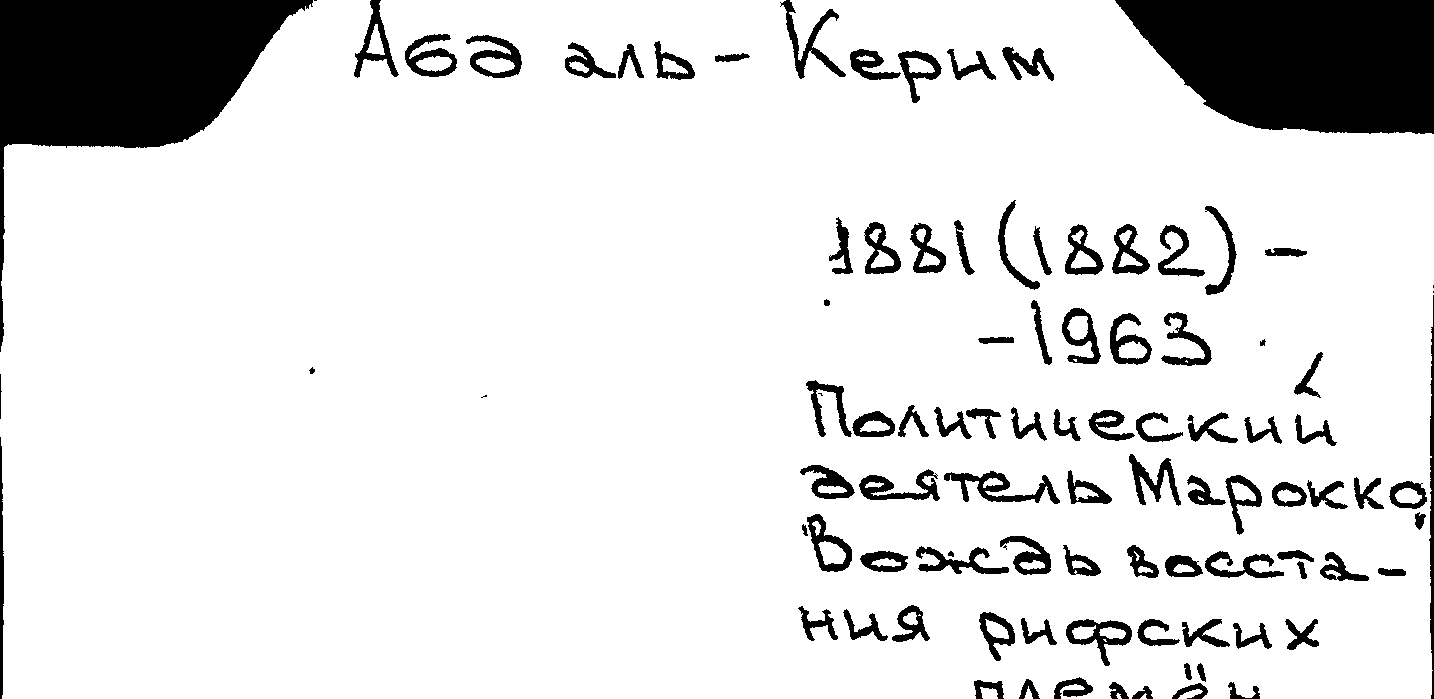 Абд аль-Керим
1881 (1882) -
- 1963
Политический
деятель Марокко,
Вождь восста-
ния рифских
племён